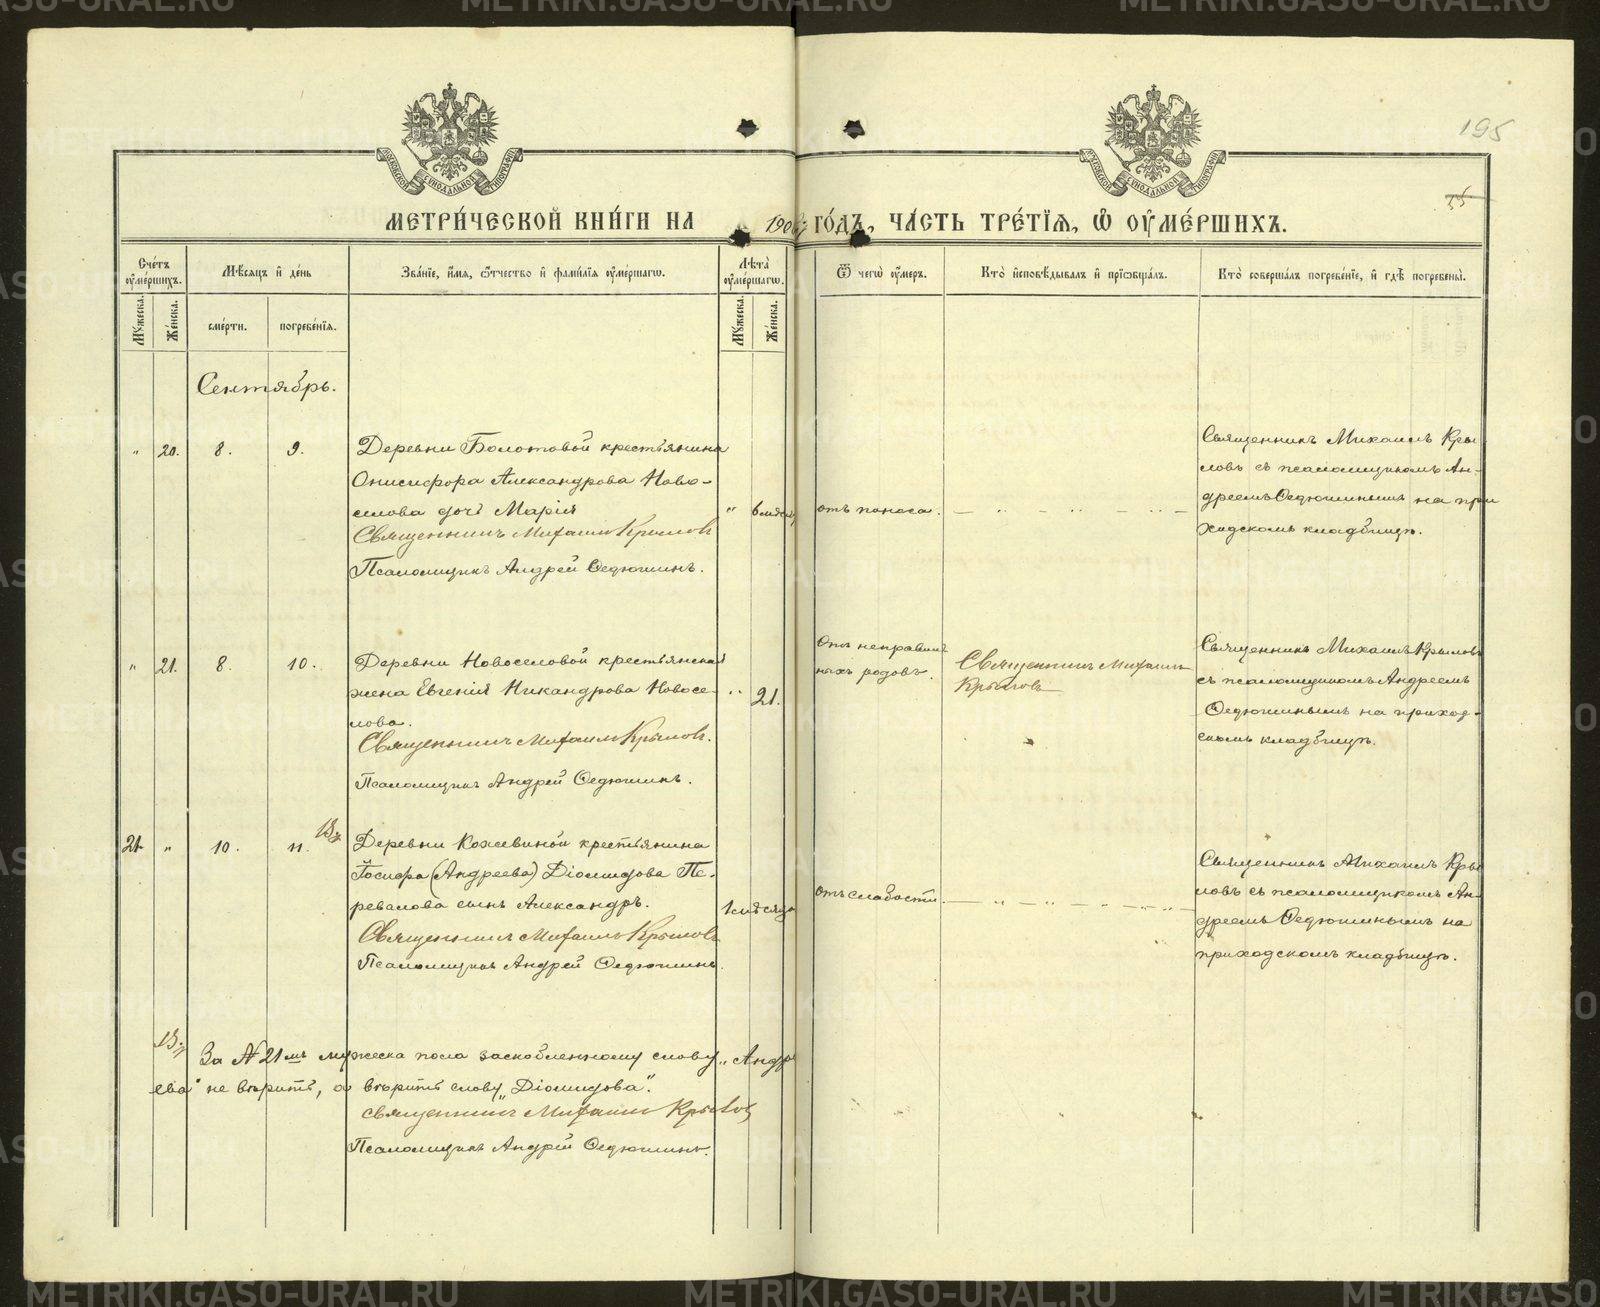 195
55
МОСКОВСКОЙ СѴНОДАЛЬНОЙ ТИПОГРАФІИ
МОСКОВСКОЙ СѴНОДАЛЬНОЙ ТИПОГРАФІИ
МЕТРИ́ЧЕСКОЙ КНИ́ГИ НА 190 ГО́ДЪ, ЧА́СТЬ ТРЕ́ТІЯ, Ѽ ОУ҆МЕ́РШИХЪ.
Сче́тъ оу҆ме́ршихъ.
Мѣ́сяцъ и҆ де́нь
Зва́нїе, и҆́мя, ѻ҆́тчество и҆ фами́лїя оу҆ме́ршагѡ.
Лѣ́та оу҆ме́ршагѡ.
Ѿ чегѡ̀ оу҆́меръ.
Кто̀ и҆сповѣ́дывалъ и҆ прїѡбща́лъ.
Кто̀ соверша́лъ погребе́нїе, и҆ гдѣ̀ погребены̀.
Мꙋ́жеска.
Же́нска.
сме́рти.
погребе́нїя.
Мꙋ́жеска.
Же́нска.
Сентябрь.
„ 20. 8. 9.
Деревни Болотовой крестьянина
Онисифора Александрова Ново-
селова дочь Марія
Священникъ Михаилъ Крыловъ
Псаломщикъ Андрей Ѳедюшинъ.
„ 6 мѣсяц
отъ поноса.
Священникъ Михаилъ Кры-
ловъ съ псаломщикомъ Ан-
дреемъ Ѳедюшинымъ на при
ходскомъ кладбищѣ.
„ 21. 8. 10.
Деревни Новоселовой крестьянская
жена Евгенія Никандрова Новосе-
лова.
Священникъ Михаилъ Крыловъ.
Псаломщикъ Андрей Ѳедюшинъ.
„ 21.
Отъ неправиль
ныхъ родовъ.
Священникъ Михаилъ
Крыловъ
Священникъ Михаилъ Крыловъ
съ псаломщикомъ Андреемъ
Ѳедюшинымъ на приход-
скомъ кладбищѣ.
21. „ 10. 11.
Деревни Кожевиной крестьянина
Іосифа (Андреева) Діомидова Пе-
ревалова сынъ Александръ.
Священникъ Михаилъ Крыловъ
Псаломщикъ Андрей Ѳедюшинъ.
1 мѣсяца
отъ слабости.
Священникъ Михаилъ Кры
ловъ съ псаломщикомъ Ан-
дреемъ Ѳедюшинымъ на
приходскомъ кладбищѣ.
За № 21мъ мужеска пола заскобленному слову „Андре
ева" не вѣрить, а вѣрить слову „Діомидова".
Священникъ Михаилъ Крыловъ
Псаломщикъ Андрей Ѳедюшинъ.
METRIKI.GASO-URAL.RU